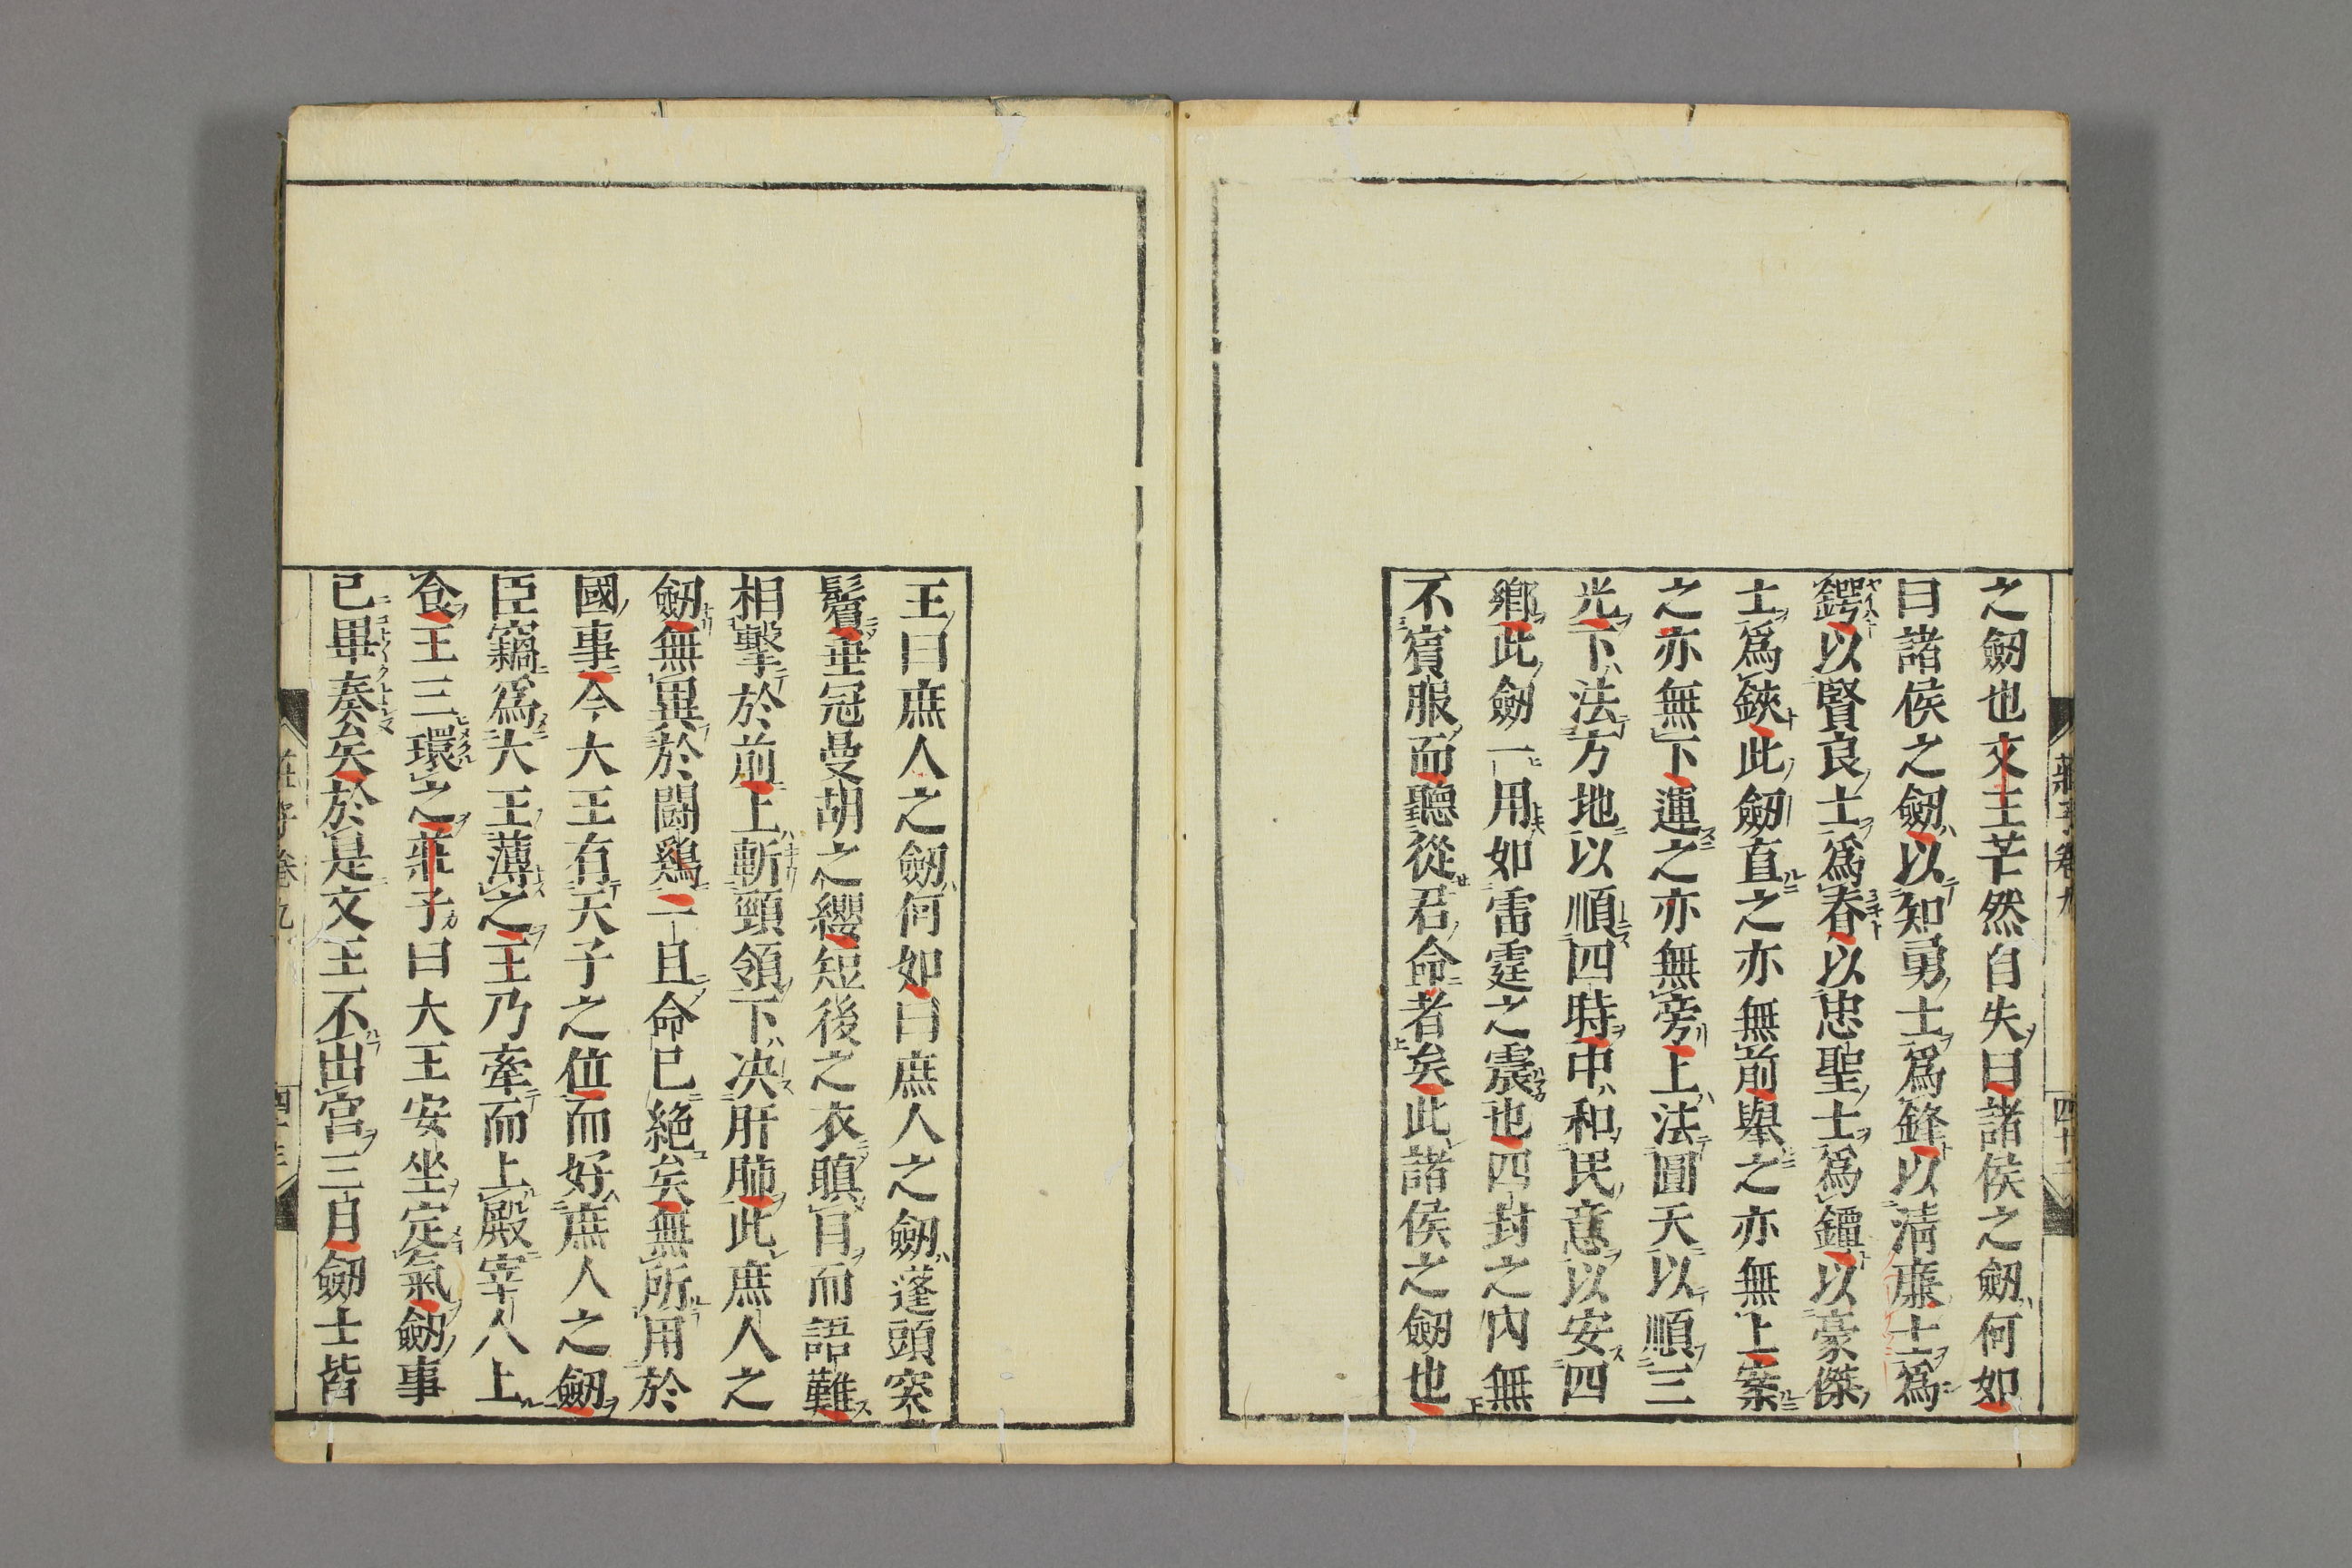 之劒也文王芒然自失曰諸侯之劒何如
曰諸侯之劒以知勇士爲鋒以淸廉士爲
鍔以賢良士爲脊以忠聖士爲鐔以豪傑
士爲鋏此劒直之亦無前擧之亦無上案
之亦無下運之亦無旁上法圓天以順三
光下法方地以順四時中和民意以安四
鄕此劒一用如雷霆之震也四封之內無
不賓服而聽從君命者矣此諸侯之劒也
王曰庶人之劒何如曰庶人之劒蓬頭突
鬢垂冠曼胡之纓短後之衣瞋目而語難
相擊於前上斬頸領下决肝肺此庶人之
劒無異於鬪鷄一旦命已絕矣無所用於
國事今大王有天子之位而好庶人之劒
臣竊爲大王薄之王乃牽而上殿宰人上
食王三環之莊子曰大王安坐定氣劒事
已畢奏矣於是文王不出宮三月劒士皆
莊子卷九